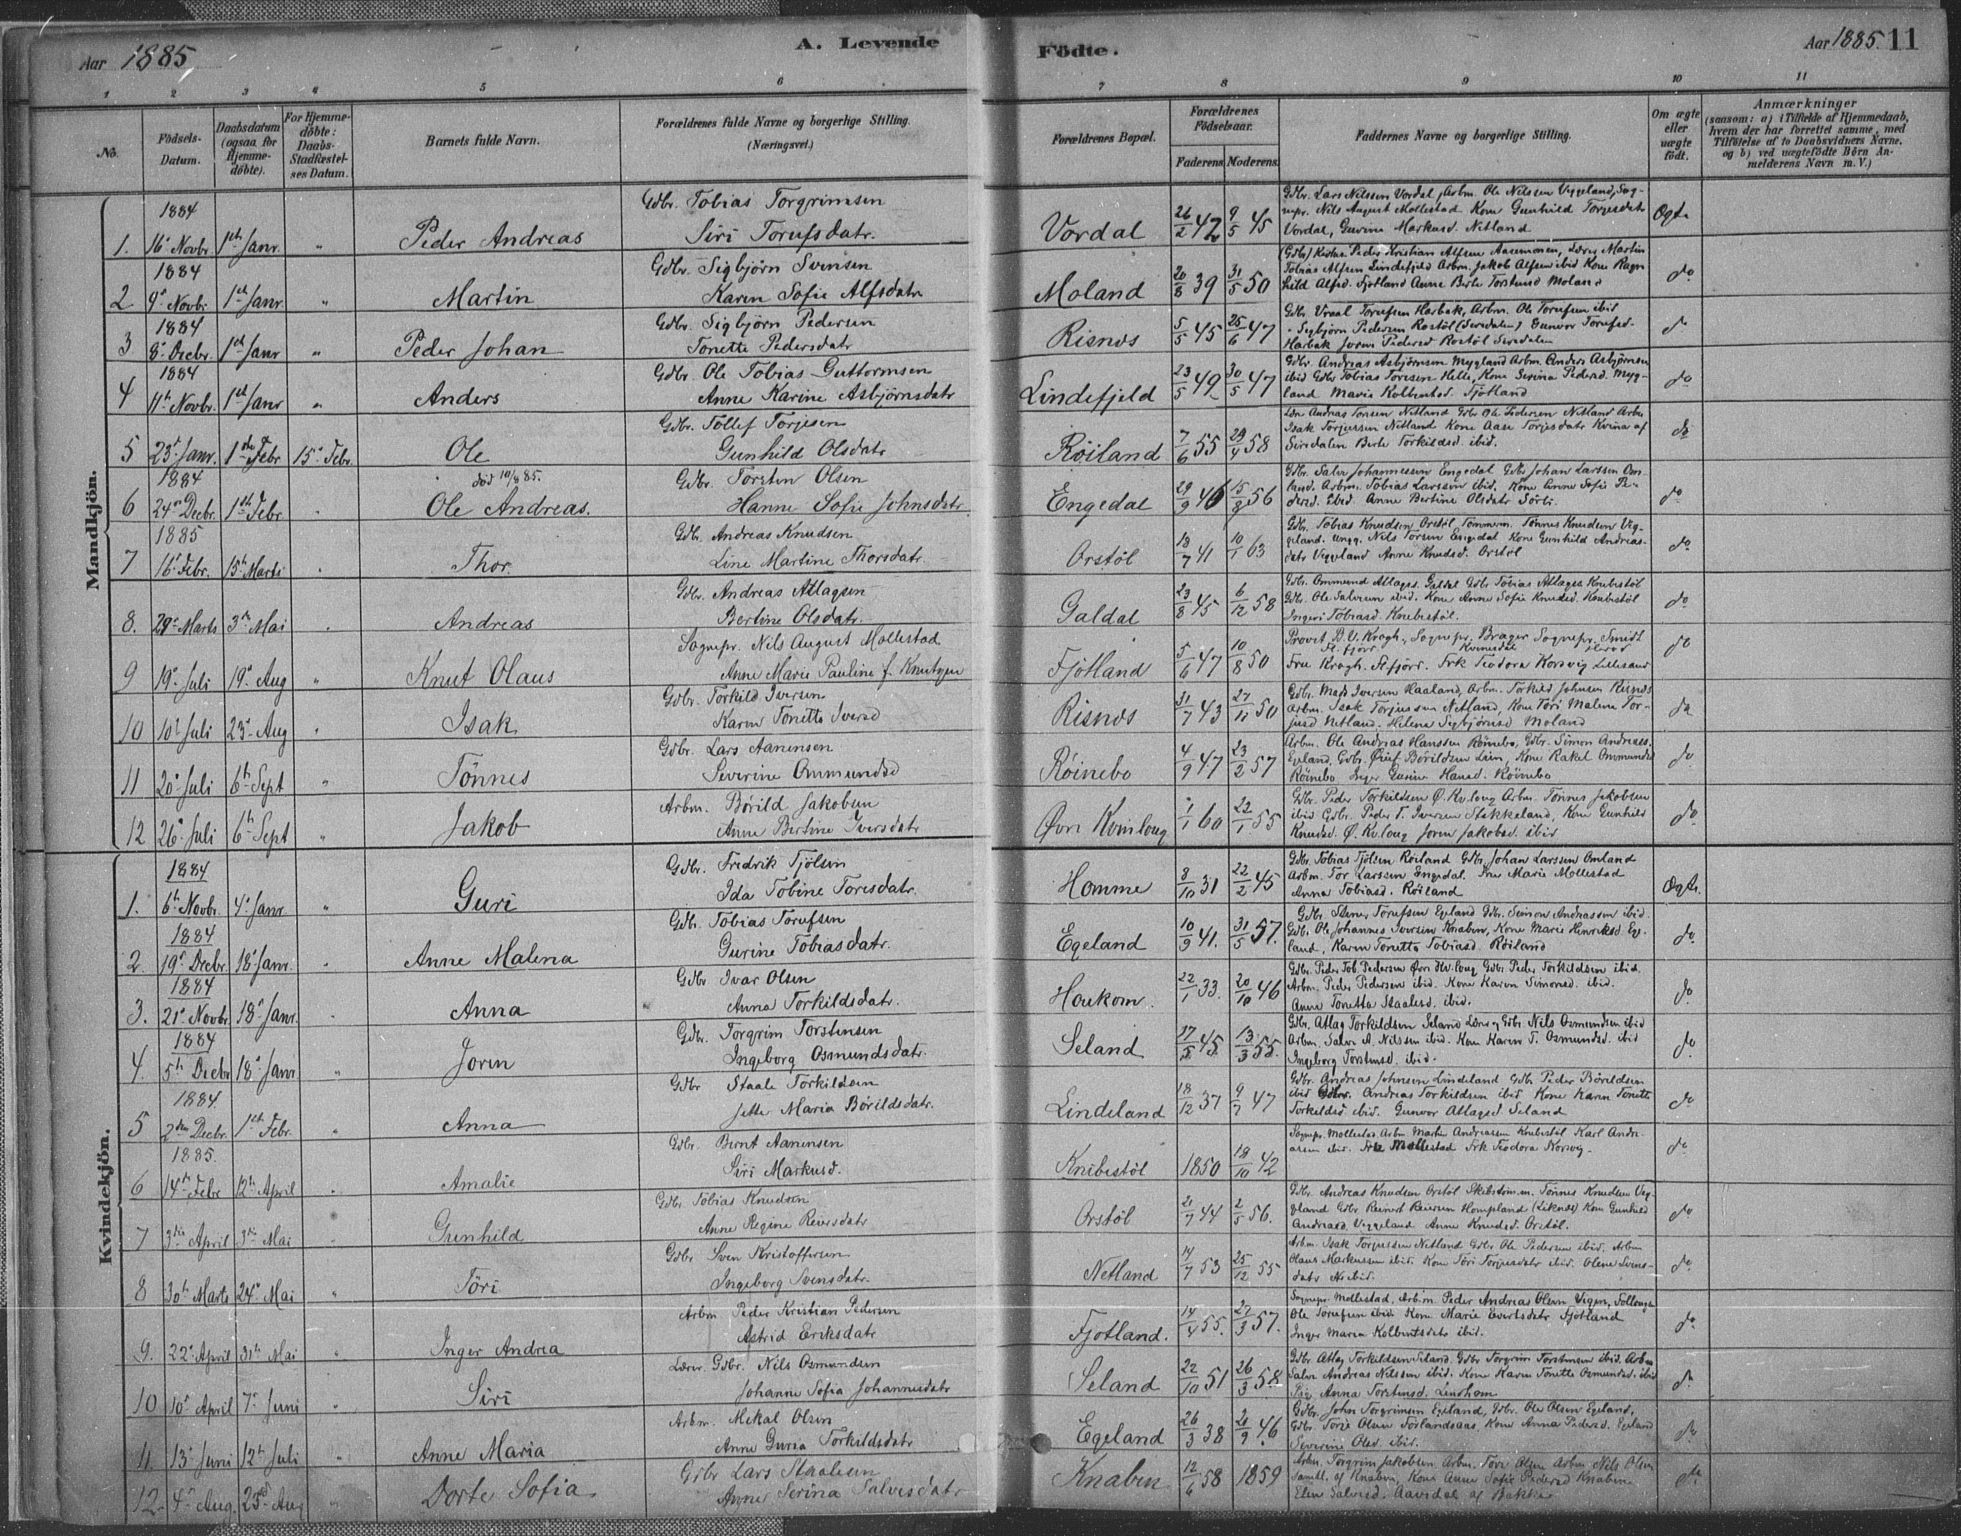 Aar 1885
A. Levende Födte.
Aar 1885. 11
1 2 3 4 5 6 7 8 9 10 11
No.
Födsels-Datum.
Daabsdatum (ogsaa for Hjemme-döbte).
For Hjemme-döbte: Daabs-Stadfæstel-ses Datum.
Barnets fulde Navn.
Forældrenes fulde Navne og borgerlige Stilling. (Næringsvei.)
Forældrenes Bopæl.
Forældrenes Födselsaar.
Faderens. Moderens.
Faddernes Navne og borgerlige Stilling.
Om ægte eller uægte födt.
Anmærkninger
(saasom: a) i Tilfælde af Hjemmedaab, hvem der har forrettet samme, med Tilföielse af to Daabsvidners Navne, og b) ved uægtefödte Börn An-melderens Navn m. V.)
Mandkjön.
1884
1. 16 Novbr 1 Janr. " Peder Andreas Gdbr. Tobias Torgrimsen Siri Torufsdatr. Vordal 26/2 42 9/5 45 Gdbr. Lars Nilssen Vordal, Arbm. Ole Nilssen Veggeland, Sog-nepr. Nils August Mollestad Kone Gunhild Vordal, Gurine Markusd. Netland Ægte
1884
2 9 Novbr. 1 Janr. " Martin Gdbr. Sigbjörn Svensen Karen Sofie Alfsdatr Moland 20/8 39 31/5 50 Peder Kristian Alfsen Martin Tobias Alfsen Lindefjeld Arbm. Jakob Alfsen ibid Kone Ragn-hild Alfsd. Fjotland Anne Berte Torstensd Moland do
1884
3 8 Decbr. 1 Janr " Peder Johan Gdbr. Sigbjörn Pedersen Tonette Pedersdatr Risnes 5/5 45 25/6 47 Gdbr Arbm. Ole Torufsen ibid Sigbjörn Pedersen Rostöl (Siredalen) Gunvor Torufsd. do
1884
4 11 Novbr. 1 Janr " Anders Gdbr. Ole Tobias Guttormsen Anne Karine Asbjörnsdatr Lindefjeld 23/5 49 30/5 47 Gdbr. Andreas Asbjörnsen Mygland Arbm. Anders Asbjörnsen ibid Gdbr Tobias Helle, Kone Serina Pedersd. Myg-land Marie Fjotland do
5 23 Janr. 1 Febr 15 Febr. Ole Gdbr. Tollef Torjesen Gunhild Olsdatr Röiland 7/6 55 29/4 58 Andreas Netland Gdbr Ole Pedersen Netland Arbm Isak Torjussen Netland Kone Aase Torjesdatr Kvina af Siredalen Berte Torkildsd. ibid. do
1884
6 24 Decbr. 1 Febr. Ole Andreas. död 10/8 85. Gdbr. Torsten Olsen Hanne Sofie Johnsdatr Engedal 29/9 46 15/8 56 Gdbr. Salve Johannessen Engedal Gdbr Johan Larssen Om-land. Arbm. Tobias Larssen ibid. Kone Anne Sofie Pe-dersd. ibid. Anne Bertine Olsdatr do
1885
7 16 Febr. 15 Marts Thor. Gdbr. Andreas Knudsen Line Martine Thorsdatr. Orstöl 18/7 41 10/1 63 Gdbr. Tobias Knudsen Orstöl Tönnes Knudsen Veg-geland. Ungk. Nils Torsen Engedal Kone Gunhild Andreas-datr Veggeland Anne Knudsd. Orstöl do
8. 29 Marts 3 Mai Andreas Gdbr. Andreas Atlagsen Bertine Olsdatr. Galdal 23/8 45 6/12 58 Gdbr. Ommund Atlags. Galdal Gdbr Tobias Atlagsen Knibestöl Gdbr. Ole Salvesen ibid. Kone Anne Sofie Knudsd. Knibestöl Ingeri Tobiasd. Knibestöl. do
9 19 Juli 19 Aug " Knut Olaus Sognepr. Nils August Mollestad Anne Marie Pauline f. Knutzen Fjötland 5/6 47 10/8 50 Provst B. V. Krogh, Sognepr. Brager Sognepr. Smidt Fru Krogh. Frk Teodora Lillesand do
10 10 Juli 23 Aug " Isak Gdbr. Torkild Iversen Karen Tonette Iversd Risnes 31/7 43 27/11 50 Gdbr. Mads Iversen Haaland, Arbm. Torkild Johnsen Risnes Arbm. Isak Torjussen Netland, Kone Töri Malene Tor-jusd Netland. Helene Sigbjörnsd Moland do
11 20 Juli 6 Sept " Tönnes Gdbr. Lars Aanensen Severine Ommundsd Röinebo 4/9 47 23/2 57 Arbm. Ole Andreas Hanssen Röinebo, Gdbr. Simon Andreas. Egeland, Gdbr. Börildsen Lien, Kone Rakel Ommundsd Röinebo Inger Gurine Hansd. Röinebo do
12 26 Juli 6 Sept " Jakob Arbm. Börild Jakobsen Anne Bertine Iversdatr Øvr Kvinlong 1/1 60 22/1 55 Gdbr. Peder Torkildsen Ø. Kv.long Arbm. Tönnes Jakobsen ibid Gdbr. Peder T. Iversen Stakkeland, Kone Gunhild Knudsd. Ø. Kv.long Joren Jakobsd. ibid do
Kvindekjön.
1884
1. 6 Novbr 4 Janr " Guri Gdbr. Fredrik Tjölsen Ida Tobine Toresdatr. Homme 8/10 31 22/2 45 Gdbr. Tobias Tjölsen Röiland Gdbr. Johan Larssen Omland Arbm. Tor Larssen Engedal. Fru Marie Mollestad Anna Tobiasd. Röiland Ægte.
1884
2. 19 Decbr 18 Janr. Anne Malena Gdbr. Tobias Torufsen Gurine Tobiasdatr. Egeland 10/9 41. 31/5 57. Gdbr Torufsen Egeland Gdbr. Simon Andreassen ibid. Gdb. Ole Johannes Iversen Knaben, Kone Marie Henriksd Ege-land, Karen Tonette Tobiasd. Röiland do
1884
3. 21 Novbr 18 Janr. Anna Gdbr Ivar Olsen Anna Torkildsdatr. Houkom. 22/1 33. 20/10 46 Gdbr. Peder Tob. Pedersen Øvr Kv.long Gdbr Peder Torkildsen ibid. Arbm. Peder Pedersen ibid. Kone Karen Simonsd. ibid. Anne Tonetta Staalesd. ibid. do
1884
4. 5 Decbr 18 Janr " Joren Gdbr. Torgrim Torstensen Ingeborg Osmundsdatr. Seland 17/5 45. 13/3 55. Gdbr. Atlag Torkildsen Seland Lærer, Gdbr. Nils Osmundsen ibid Arbm. Salve A. Nilssen ibid. Kone Karen T. Osmundsd. ibid Ingeborg Torstensd. ibid. do
1884.
5 2 Decbr. 1 Febr. " Anna Gdbr Staale Torkildsen Jette Maria Börildsdatr. Lindeland 18/12 37 9/7 47 Gdbr. Andreas Johnsen Lindeland Gdbr Peder Börildsen ibid Gdbr. Andreas Torkildsen ibid Kone Karen Tonette Torkildsd ibid. Gunvor Atlagsd Seland do
1885.
6 14 Febr 12 April Amalie Gdbr. Bernt Aanensen Siri Markusd. Knibestöl 1850 18/10 42 Sognepr. Mollestad Arbm. Martin Andreassen Knibestöl Karl Andre-assen ibid. Fru Mollestad Frk Teodora do
7 3 April 3 Mai Gunhild Gdbr Tobias Knudsen Anne Regine Reiersdatr Orstöl 21/7 44 2/5 56. Gdbr. Andreas Knudsen Orstöl Tönnes Knudsen Veg-geland Gdbr Reinert Reiersen Hompland Kone Gunhild Andreasd. Veggeland Anne Knudsd. Orstöl. do
8 30 Marts 24 Mai " Töri Gdbr Sven Kristoffersen Ingeborg Svensdatr. Netland 14/7 53 25/12 55 Arbm. Isak Torjussen Netland Gdbr Ole Pedersen ibid. Arbm Olaus Markussen ibid. Kone Töri Torjusdatr ibid. Olene Svens-datr ibid. do
9. 22 April 31 Mai " Inger Andrea Arbm Peder Kristian Pedersen Astrid Eriksdatr Fjotland. 14/4 55. 27/3 57. Sognepr. Mollestad, Arbm. Peder Andreas Olsen Ole Torufsen ibid Kone Marie Evertsdatr Fjotland Inger Maria ibid. do
10 10 April 7 Juni " Siri Lærer Gdbr. Nils Osmundsen Johanne Sofia Johannesdatr Seland 22/10 51 26/3 58 Gdbr. Atlag Torkildsen Seland. Gdbr Torgrim Torstensen ibid. Arbm Salve Andreas Nilssen ibid. Kone Karen Tonette Osmundsd. ibid Anna Torstensd. do
11. 13 Juni 12 Juli " Anne Maria Arbm. Mekal Olsen Anne Guria Torkildsdatr Egeland 26/3 38 21/9 46 Gdbr. John Torgrimsen Egeland, Gdbr. Ole Olsen Egeland, Gdbr. Torje Olsen Kone Anna Pedersd. Egeland Severine Olsd. ibid. do
12. 4 Aug. 23 Aug " Dorte Sofia Gdbr Lars Staalesen Anne Serina Salvesdatr Knaben 12/6 58 1859 Arbm. Torgrim Jakobsen Arbm. Tore Olsen Arbm Nils Olsen Samtl. af Knaben, Kone Anne Sofie Pedersd Knaben Elen Salvesd. af Bakke do